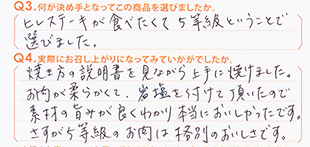 Q3.何が決め手となってこの商品を選びましたか。
ヒレステーキが食べたくて5等級ということで
選びました。
Q4.実際にお召し上がりになってみていかがでしたか。
焼き方の説明書を見ながら上手に焼けました。
お肉が柔らかくて、岩塩を付けて頂いたので
素材の旨みが良くわかり本当においしかったです。
さすが5等級のお肉は格別のおいしさです。